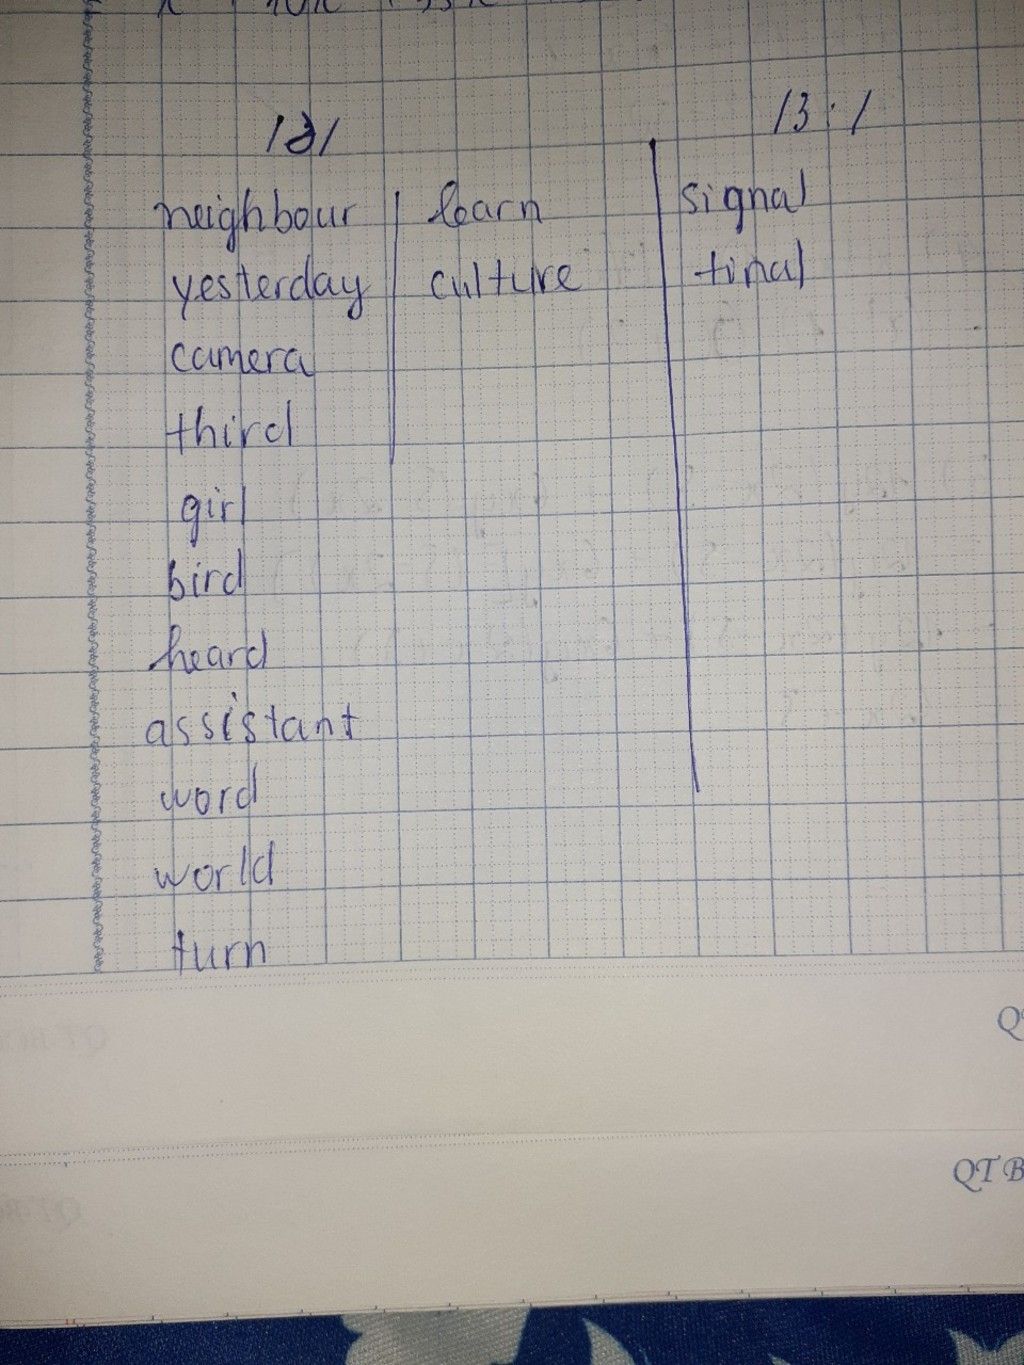 /ə/ /3:/
neighbour learn signal
yesterday culture
camera
third
girl
bird
heard
assistant
word
world
turn
QT B